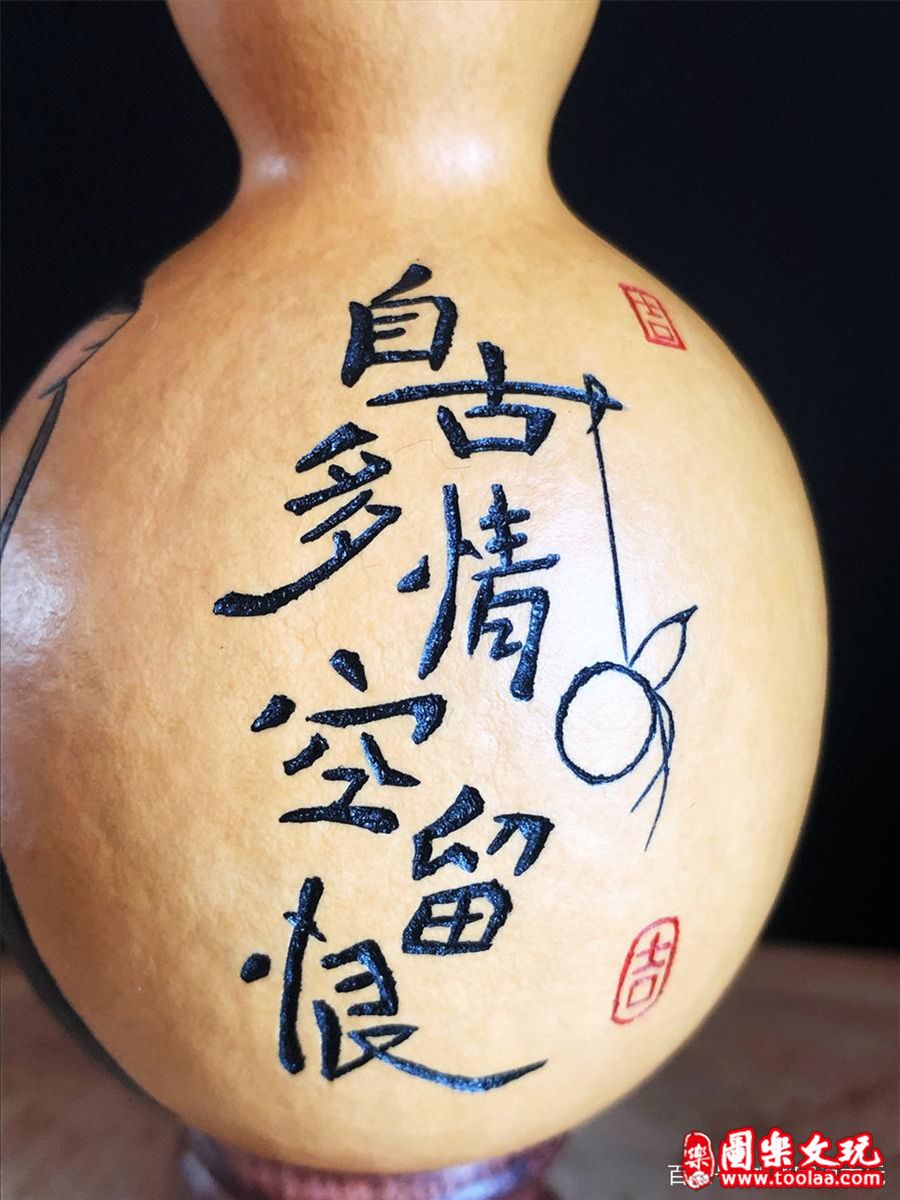 自古
多情
空留
恨
吉
吉
圖樂文玩
www.toolaa.com